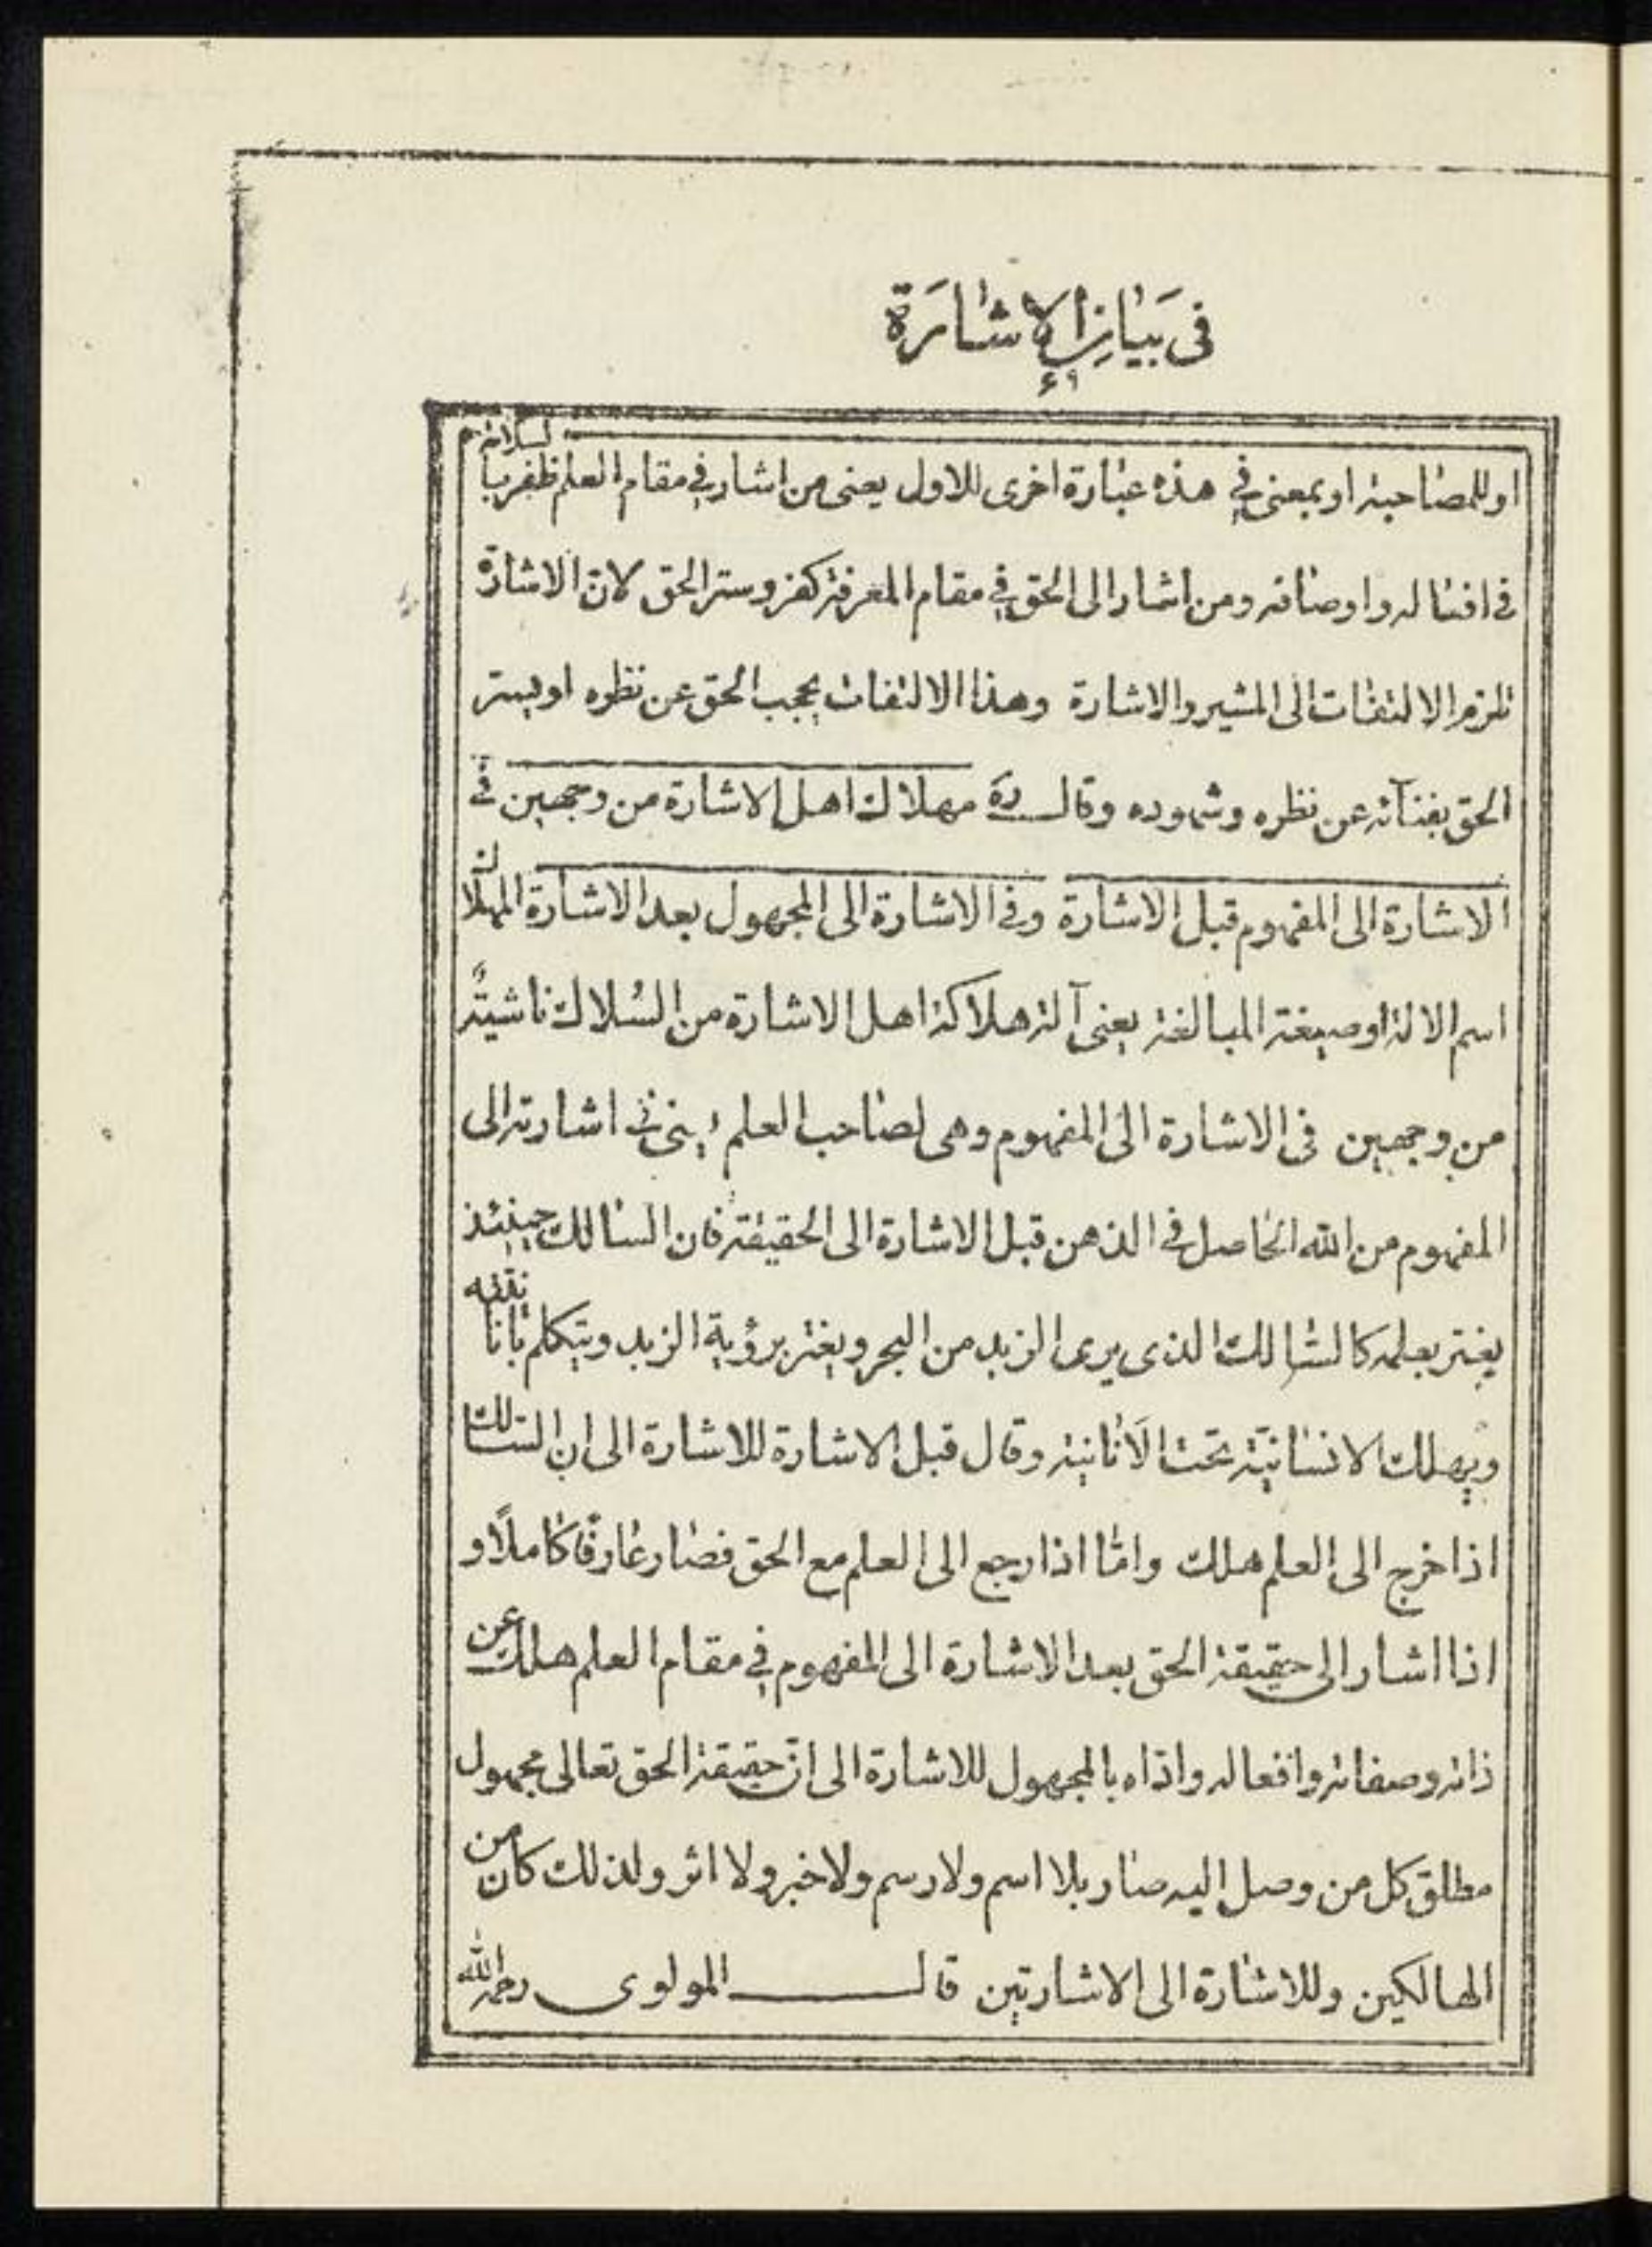 فی بَیانِ الإشارَة
۶۹
او للمصاحبة او بمعنى في هذه عبارة اخرى للاول يعنى من اشار في مقام العلم ظفر با
في افعاله واوصافه ومن اشار الى الحق في مقام المعرفة كفر وستر الحق لان الاشارة
تلزم الالتفات الى المشير والاشارة وهذا الالتفات يحجب الحق عن نظره او يستر
الحق بفنآئه عن نظره وشهوده وقال ره مهلاك اهل الاشارة من وجهين في
الاشارة الى المفهوم قبل الاشارة وفي الاشارة الى المجهول بعد الاشارة المهلاك
اسم الالة او صيغة المبالغة يعنى آلة هلاكة اهل الاشارة من السُلاك ناشيةٌ
من وجهين فى الاشارة الى المفهوم وهى لصاحب العلم اشارته الى
المفهوم من الله الحاصل في الذهن قبل الاشارة الى الحقيقة فان السالك حينئذ
يغتر بعلمه كالسالك الذى يرى الزبد من البحر ويغتر برؤية الزبد ويتكلم بانا
ويهلك الانسانيّة تحت الَانانية وقال قبل الاشارة للاشارة الى ان السالك
اذا خرج الى العلم هلك وامّا اذا رجع الى العلم مع الحق فصار عارفًا كاملًا و
اذا اشار الى حقيقة الحق بعد الاشارة الى المفهوم في مقام العلم هلك عن
ذاته وصفاته وافعاله واداه بالمجهول للاشارة الى انّ حقيقة الحق تعالى مجهول
مطلق كل من وصل اليه صار بلا اسم ولا رسم ولا خبر ولا اثر ولذلك كان من
الهالكين وللاشارة الى الاشارتين قال المولوى رحمه الله